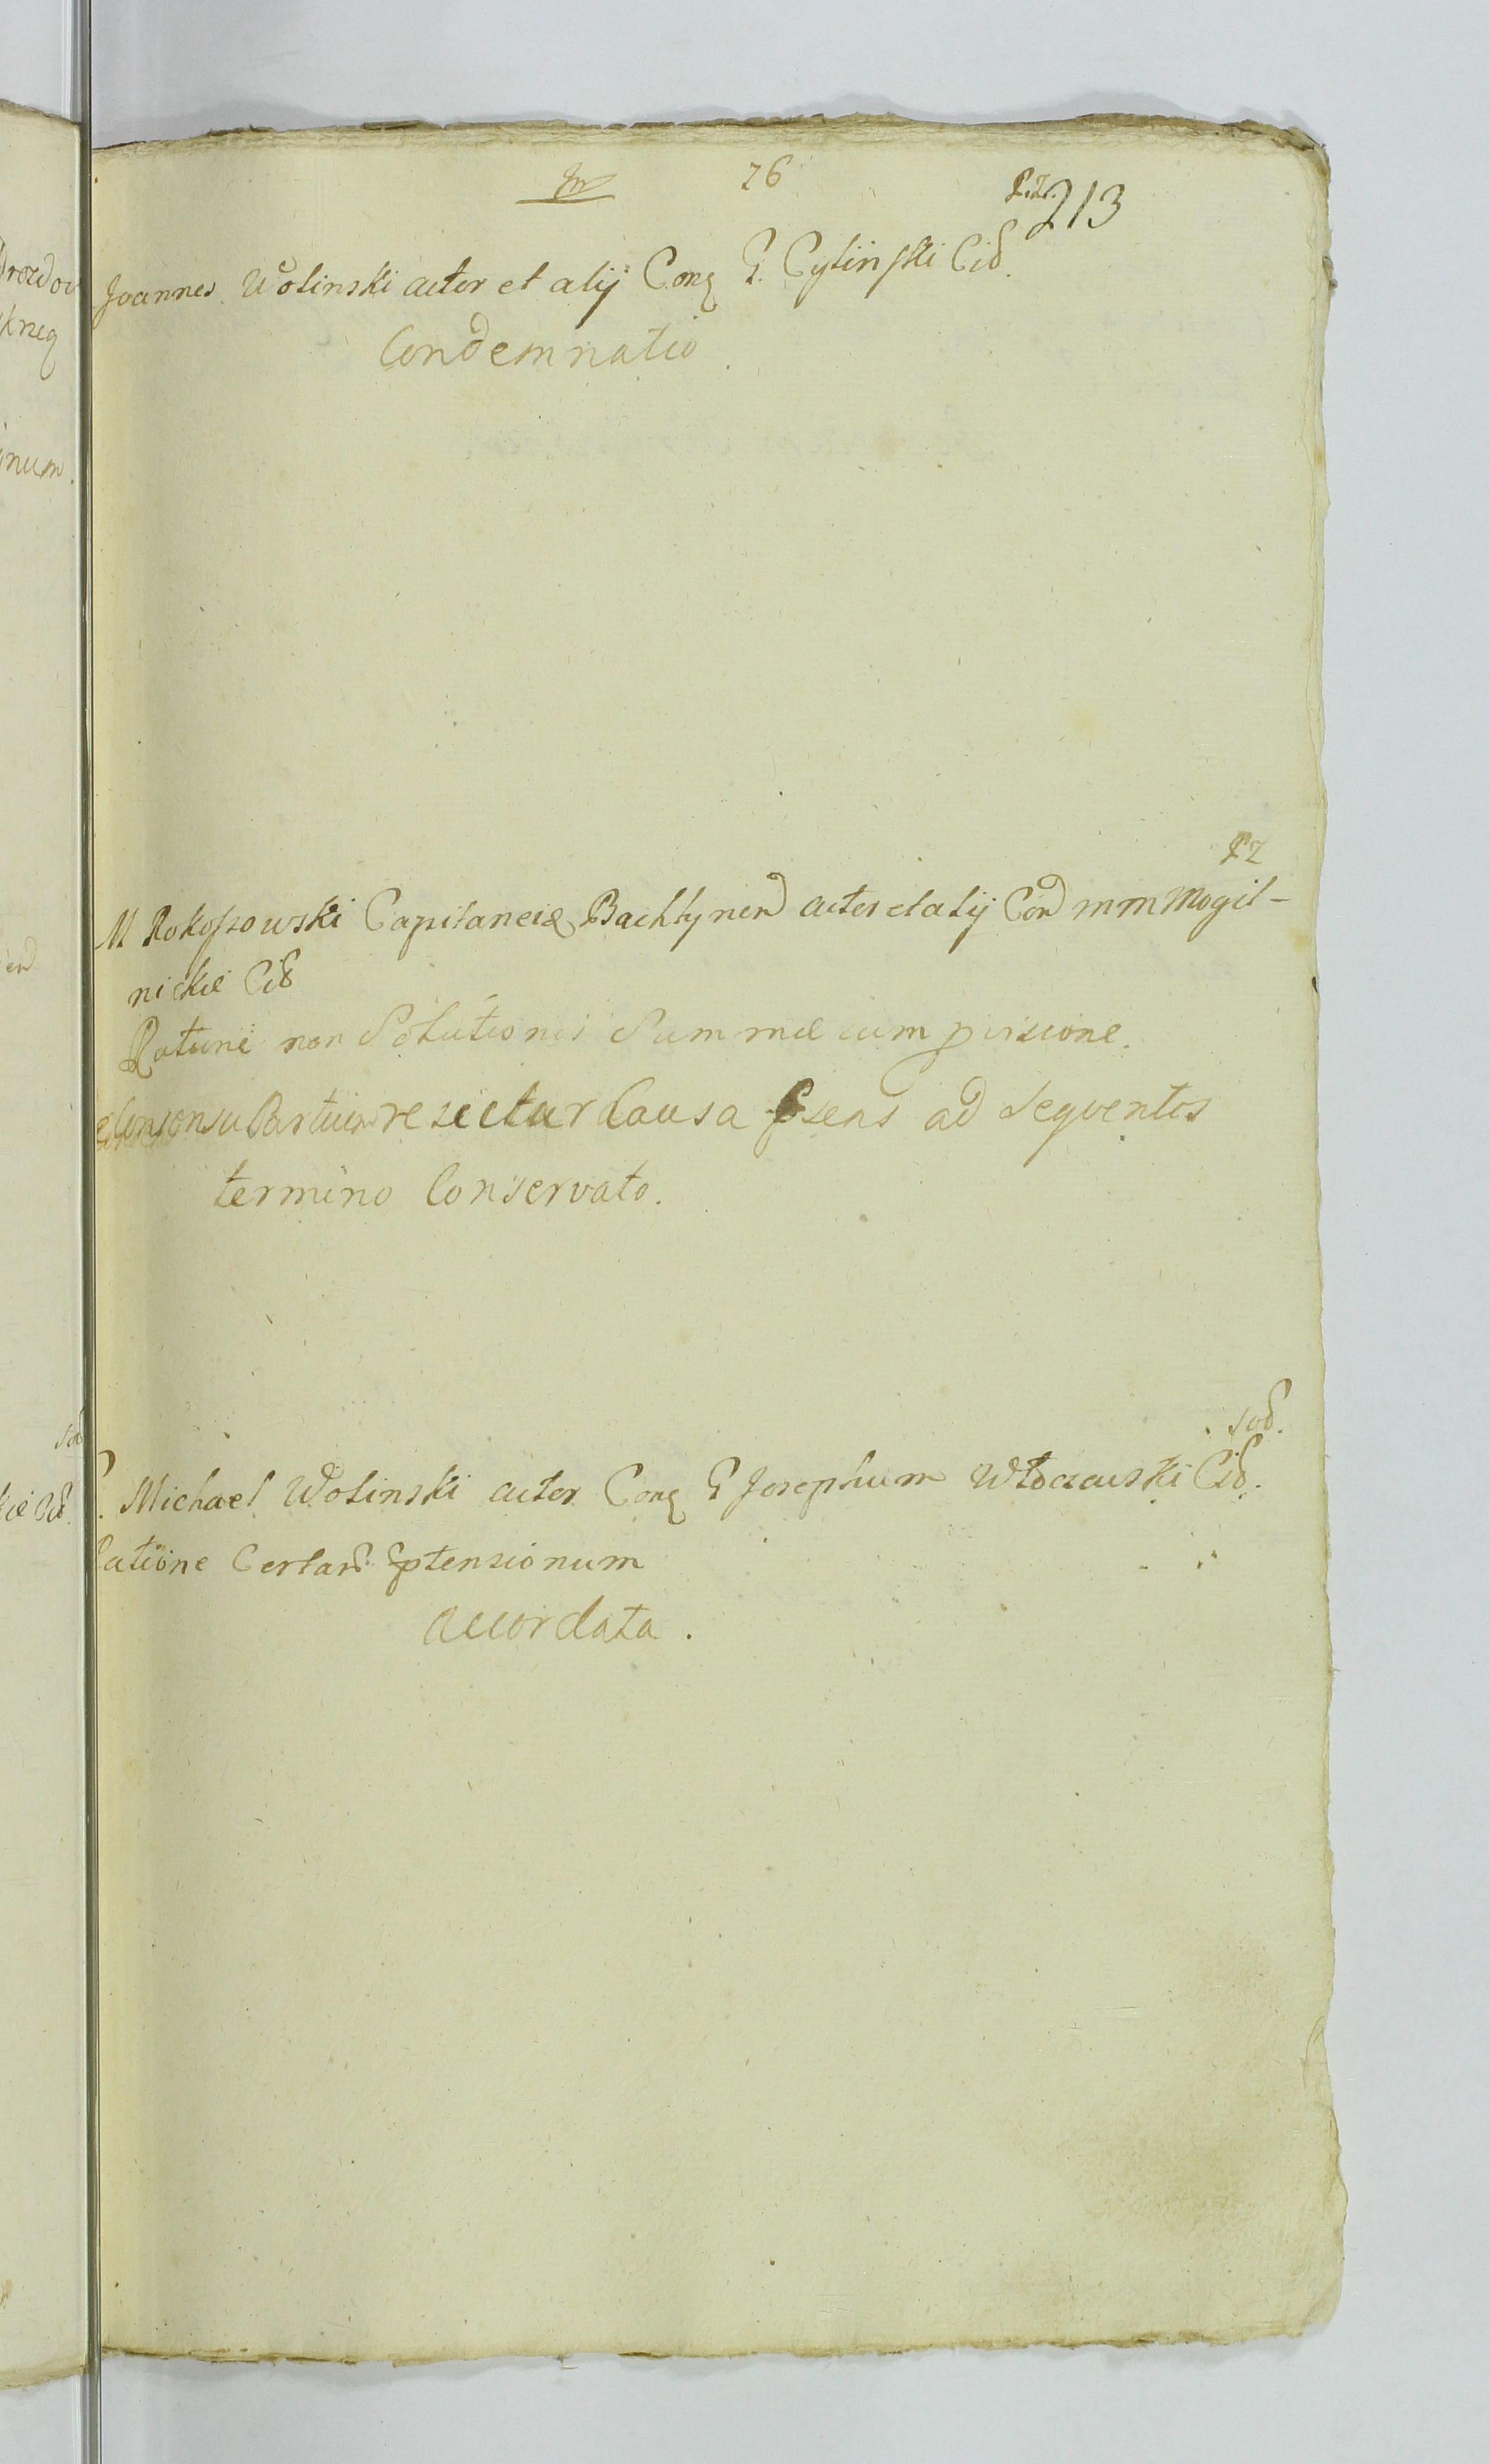 76
213
Joannes Wolinski actor et alij Conq G. Cylinski Citt.
Condemnatio.
M Rokoszowski Capitaneus actor et alij Con mm Mogil-
nickie Citt
Ratione non Solutionis Summæ cum provisione.
Consensu Partium reiicitur Causa psens ad sequentes
termino Conservato.
Michael Wolinski actor Conq G Josephum Włoczewski Citt.
Ratione Certar ptensionum
accordata.